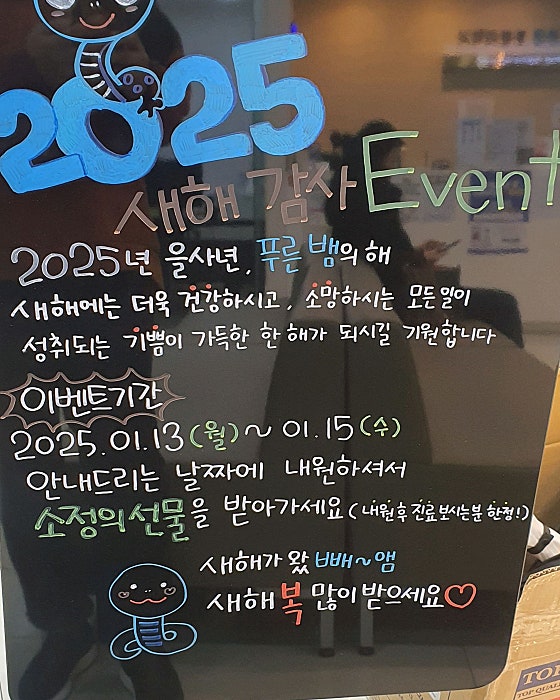 2025
새해 감사 Event
2025년 을사년, 푸른 뱀의 해
새해에는 더욱 건강하시고, 소망하시는 모든일이
성취되는 기쁨이 가득한 한해가 되시길 기원합니다
이벤트기간
2025.01.13(월)~01.15(수)
안내드리는 날짜에 내원하셔서
소정의선물을 받아가세요(내원후진료보시는분한정!)
새해가 왔 빼~앰
새해 복 많이받으세요♡
TOP QUAL